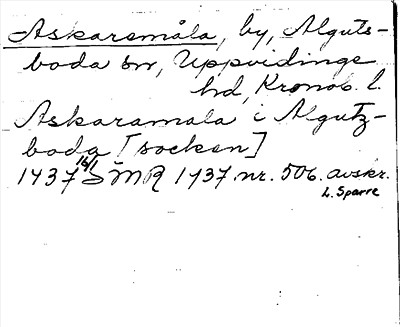 Askarsmåla, by, Alguts-
boda sn, Uppvidinge
hd, Kronob. l.
Askaramala i Algutz-
boda [socken]
1437 16/1 SMR 1437 nr. 506. avskr.
L. Sparre